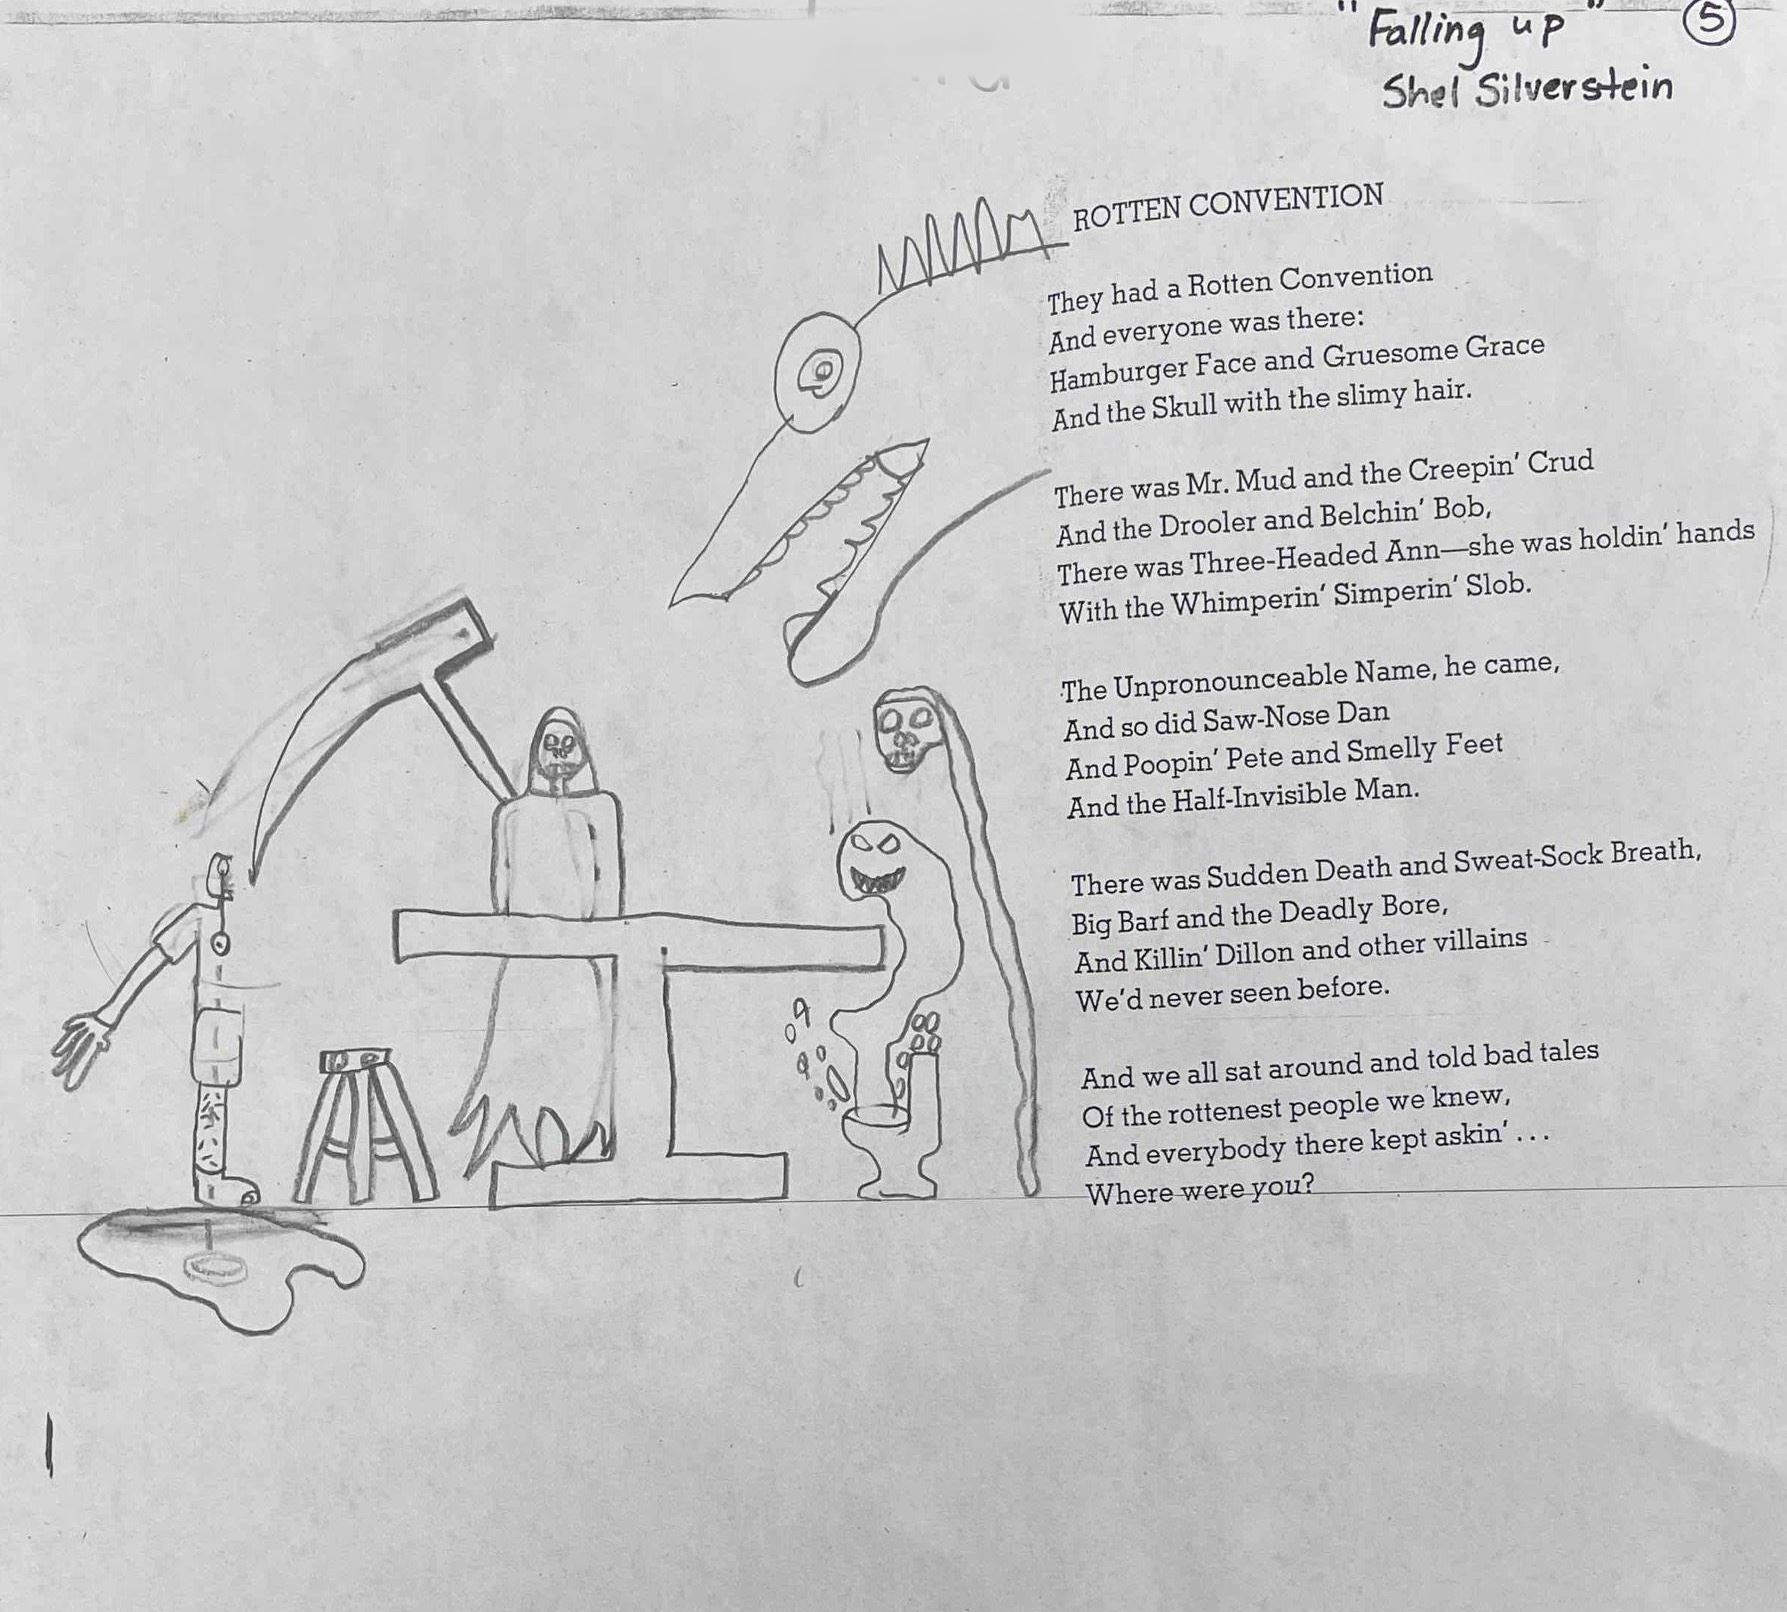 "Falling up" 5
Shel Silverstein
ROTTEN CONVENTION
They had a Rotten Convention
And everyone was there:
Hamburger Face and Gruesome Grace
And the Skull with the slimy hair.
There was Mr. Mud and the Creepin' Crud
And the Drooler and Belchin' Bob,
There was Three-Headed Ann—she was holdin' hands
With the Whimperin' Simperin' Slob.
The Unpronounceable Name, he came,
And so did Saw-Nose Dan
And Poopin' Pete and Smelly Feet
And the Half-Invisible Man.
There was Sudden Death and Sweat-Sock Breath,
Big Barf and the Deadly Bore,
And Killin' Dillon and other villains
We'd never seen before.
And we all sat around and told bad tales
Of the rottenest people we knew,
And everybody there kept askin' . . .
Where were you?